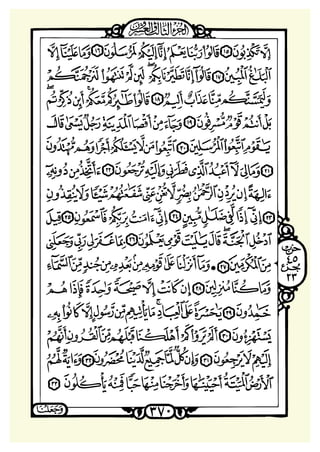 إِلَّا تَكْذِبُونَ ١٥ قَالُوا۟ رَبُّنَا يَعْلَمُ إِنَّآ إِلَيْكُمْ لَمُرْسَلُونَ ١٦ وَمَا عَلَيْنَآ إِلَّا
ٱلْبَلَٰغُ ٱلْمُبِينُ ١٧ قَالُوٓا۟ إِنَّا تَطَيَّرْنَا بِكُمْ لَئِن لَّمْ تَنتَهُوا۟ لَنَرْجُمَنَّكُمْ
وَلَيَمَسَّنَّكُم مِّنَّا عَذَابٌ أَلِيمٌ ١٨ قَالُوا۟ طَٰٓئِرُكُم مَّعَكُمْ أَئِن ذُكِّرْتُم
بَلْ أَنتُمْ قَوْمٌ مُّسْرِفُونَ ١٩ وَجَآءَ مِنْ أَقْصَا ٱلْمَدِينَةِ رَجُلٌ يَسْعَىٰ قَالَ
يَٰقَوْمِ ٱتَّبِعُوا۟ ٱلْمُرْسَلِينَ ٢٠ ٱتَّبِعُوا۟ مَن لَّا يَسْـَٔلُكُمْ أَجْرًا وَهُم مُّهْتَدُونَ
٢١ وَمَا لِىَ لَآ أَعْبُدُ ٱلَّذِى فَطَرَنِى وَإِلَيْهِ تُرْجَعُونَ ٢٢ ءَأَتَّخِذُ مِن دُونِهِۦٓ
ءَالِهَةً إِن يُرِدْنِ ٱلرَّحْمَٰنُ بِضُرٍّ لَّا تُغْنِ عَنِّى شَفَٰعَتُهُمْ شَيْـًٔا وَلَا يُنقِذُونِ
٢٣ إِنِّىٓ إِذًا لَّفِى ضَلَٰلٍ مُّبِينٍ ٢٤ إِنِّىٓ ءَامَنتُ بِرَبِّكُمْ فَٱسْمَعُونِ ٢٥ قِيلَ
ٱدْخُلِ ٱلْجَنَّةَ قَالَ يَٰلَيْتَ قَوْمِى يَعْلَمُونَ ٢٦ بِمَا غَفَرَ لِى رَبِّى وَجَعَلَنِى
مِنَ ٱلْمُكْرَمِينَ ٢٧ وَمَآ أَنزَلْنَا عَلَىٰ قَوْمِهِۦ مِنۢ بَعْدِهِۦ مِن جُندٍ مِّنَ ٱلسَّمَآءِ
حزب ٤٥ جزء ٢٣
وَمَا كُنَّا مُنزِلِينَ ٢٨ إِن كَانَتْ إِلَّا صَيْحَةً وَٰحِدَةً فَإِذَا هُمْ
خَٰمِدُونَ ٢٩ يَٰحَسْرَةً عَلَى ٱلْعِبَادِ مَا يَأْتِيهِم مِّن رَّسُولٍ إِلَّا كَانُوا۟ بِهِۦ
يَسْتَهْزِءُونَ ٣٠ أَلَمْ يَرَوْا۟ كَمْ أَهْلَكْنَا قَبْلَهُم مِّنَ ٱلْقُرُونِ أَنَّهُمْ
إِلَيْهِمْ لَا يَرْجِعُونَ ٣١ وَإِن كُلٌّ لَّمَّا جَمِيعٌ لَّدَيْنَا مُحْضَرُونَ ٣٢ وَءَايَةٌ لَّهُمُ
ٱلْأَرْضُ ٱلْمَيْتَةُ أَحْيَيْنَٰهَا وَأَخْرَجْنَا مِنْهَا حَبًّا فَمِنْهُ يَأْكُلُونَ ٣٣
٣٧٠
وَجَعَلْنَا